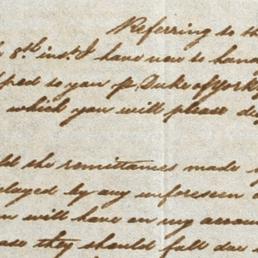 Referring to th
8th inst. I have now to hand
ped to you pr. Duke of York
which you will please de
ld the remittances made
layed by any unforeseen
n will have on my accou
ase they should fall due